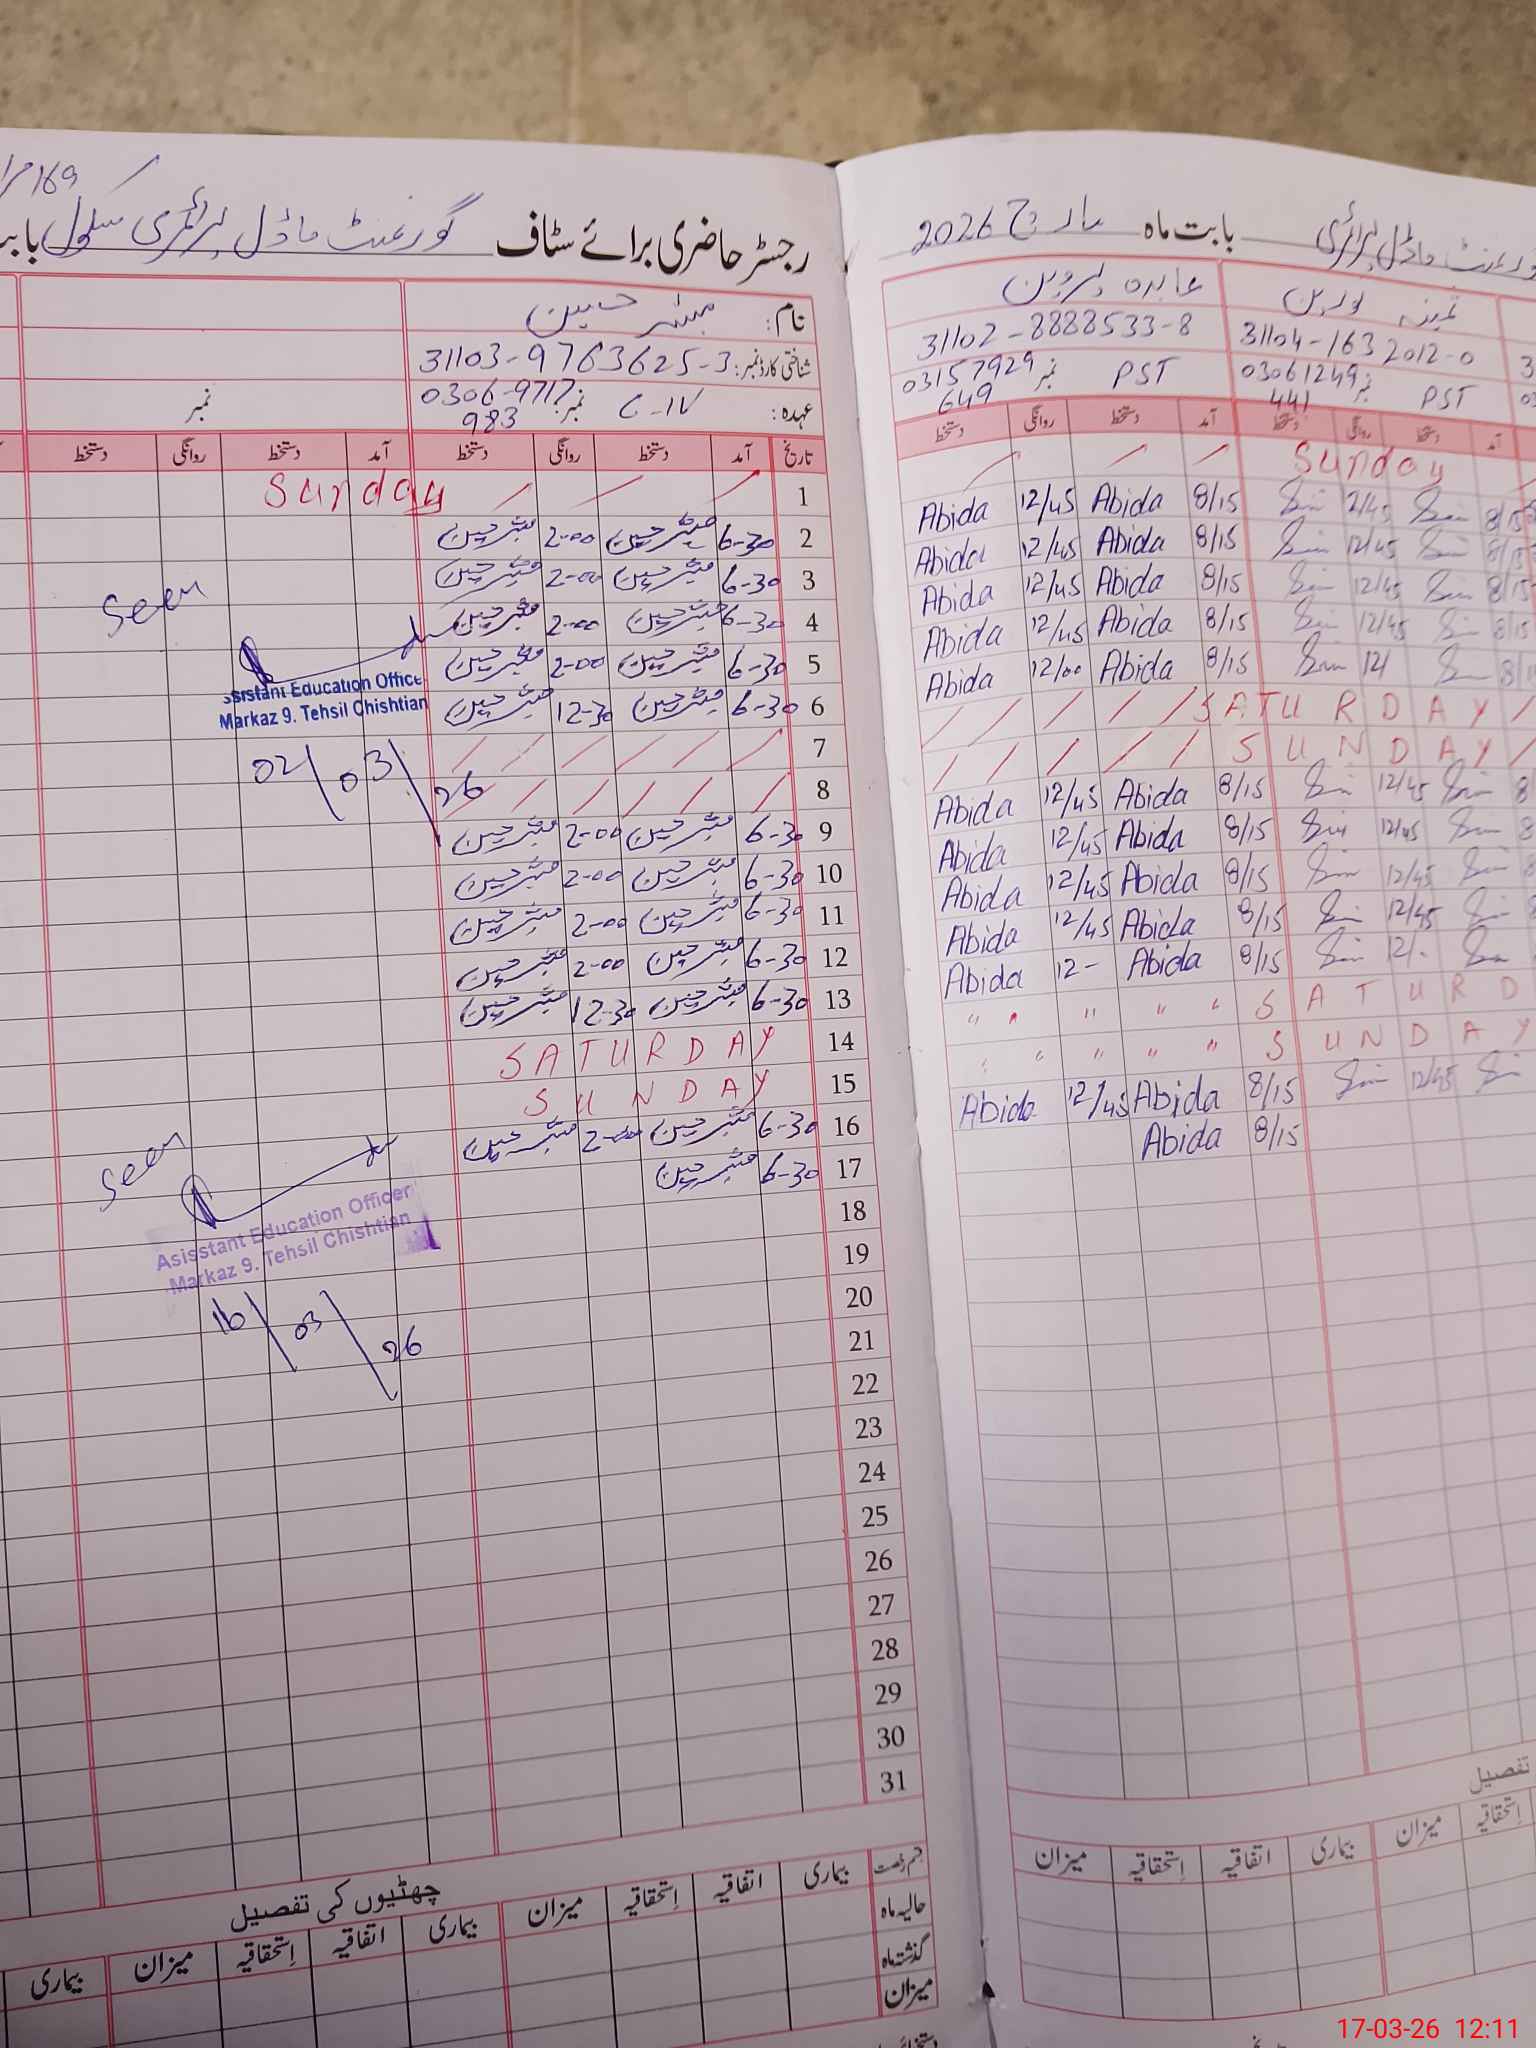 169
رجسٹر حاضری برائے سٹاف گورنمنٹ ماڈل پرائمری سکول بابت
نام: مبشر حسین
شناختی کارڈ نمبر: 31103-9763625-3
عہدہ: C-IV نمبر: 0306-9717983
نمبر
تاریخ آمد دستخط روانگی دستخط آمد دستخط روانگی دستخط
1 Sunday
2 6-30 مبشر حسین 2-00 مبشر حسین
3 6-30 مبشر حسین 2-00 مبشر حسین
4 6-30 مبشر حسین 2-00 مبشر حسین
5 6-30 مبشر حسین 2-00 مبشر حسین
6 6-30 مبشر حسین 12-30 مبشر حسین
7
8
9 6-30 مبشر حسین 2-00 مبشر حسین
10 6-30 مبشر حسین 2-00 مبشر حسین
11 6-30 مبشر حسین 2-00 مبشر حسین
12 6-30 مبشر حسین 2-00 مبشر حسین
13 6-30 مبشر حسین 12-30 مبشر حسین
14 SATURDAY
15 SUNDAY
16 6-30 مبشر حسین 2-00 مبشر حسین
17 6-30 مبشر حسین
18
19
20
21
22
23
24
25
26
27
28
29
30
31
Seen
Assistant Education Officer
Markaz 9. Tehsil Chishtian
02/03/26
Seen
Asisstant Education Officer
Markaz 9. Tehsil Chishtian
16/03/26
چھٹیوں کی تفصیل
قسم رخصت بیماری اتفاقیہ اِستحقاقیہ میزان بیماری اتفاقیہ اِستحقاقیہ میزان بیماری
حالیہ ماہ
گذشتہ ماہ
میزان
گورنمنٹ ماڈل پرائمری بابت ماہ مارچ 2026
ثمینہ نورین عابدہ پروین
31104-1632012-0 31102-8888533-8
PST نمبر 03061249441 PST نمبر 03157929649
آمد دستخط روانگی دستخط آمد دستخط روانگی دستخط
Sunday
8/15 12/45 8/15 Abida 12/45 Abida
8/15 12/45 8/15 Abida 12/45 Abida
8/15 12/45 8/15 Abida 12/45 Abida
8/15 12/45 8/15 Abida 12/45 Abida
8/1 12/ 8/15 Abida 12/00 Abida
SATURDAY
SUNDAY
8 12/45 8/15 Abida 12/45 Abida
8 12/45 8/15 Abida 12/45 Abida
8 12/45 8/15 Abida 12/45 Abida
12/45 8/15 Abida 12/45 Abida
12/- 8/15 Abida 12- Abida
SATURD
SUNDAY
12/45 8/15 Abida 12/45 Abida
8/15 Abida
تفصیل
اِستحقاقیہ میزان بیماری اتفاقیہ اِستحقاقیہ میزان
17-03-26 12:11